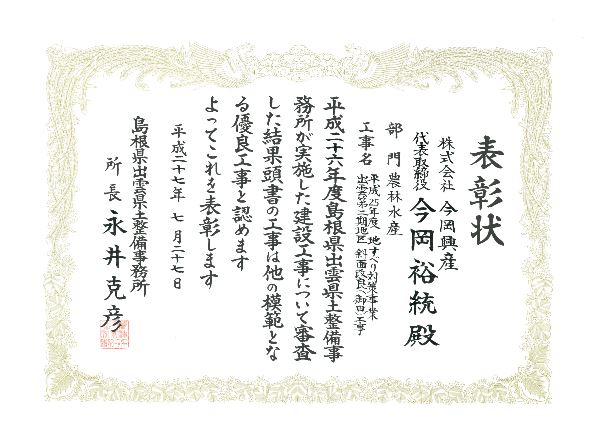 表彰状
株式会社 今岡興産
代表取締役 今岡裕統殿
部門 農林水産
工事名 平成25年度 地すべり対策事業
出雲第二期地区 斜面改良
平成二十六年度島根県出雲県土整備事
務所が実施した建設工事について審査
した結果頭書の工事は他の模範とな
る優良工事と認めます
よってこれを表彰します
平成二十七年 七月二十七日
島根県出雲県土整備事務所
所長 永井克彦